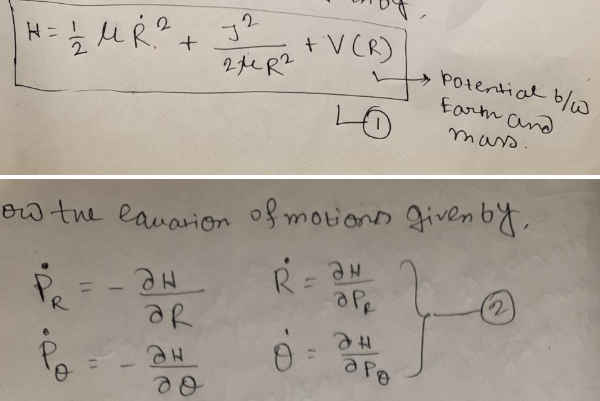 by,
H = 1/2 μ Ṙ² + J²/2μR² + V(R)
Potential b/w
Earth and
mass.
①
ow the equation of motions given by,
Ṗ_R = - ∂H/∂R    Ṙ = ∂H/∂P_R
②
Ṗ_θ = - ∂H/∂θ    θ̇ = ∂H/∂P_θ